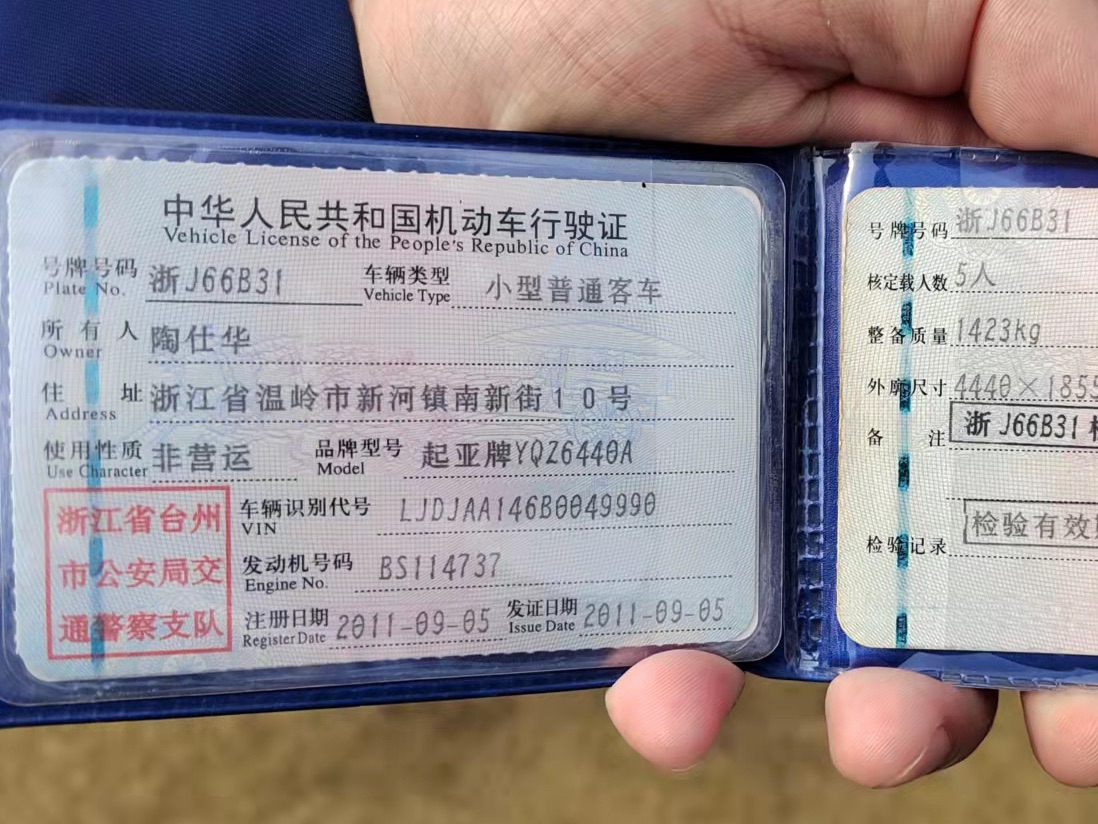 中华人民共和国机动车行驶证
Vehicle License of the People's Republic of China
号牌号码 浙J66B31 车辆类型 小型普通客车
Plate No. Vehicle Type
所有人 陶仕华
Owner
住址 浙江省温岭市新河镇南新街10号
Address
使用性质 非营运 品牌型号 起亚牌YQZ6440A
Use Character Model
浙江省台州
市公安局交
通警察支队
车辆识别代号 LJDJAA146B0049990
VIN
发动机号码 BS114737
Engine No.
注册日期 2011-09-05 发证日期 2011-09-05
Register Date Issue Date
号牌号码 浙J66B31
核定载人数 5人
整备质量 1423kg
外廓尺寸 4440×1855
备注 浙J66B31
检验有效
检验记录